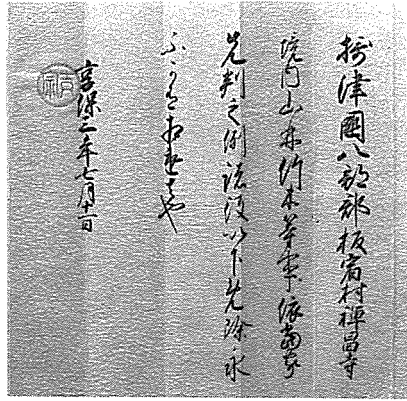 摂津國八部郡板宿村禅昌寺
境内山林竹木等事依當家
先判之例諸役以下免除永
不可有相違者也
享保三年七月十一日